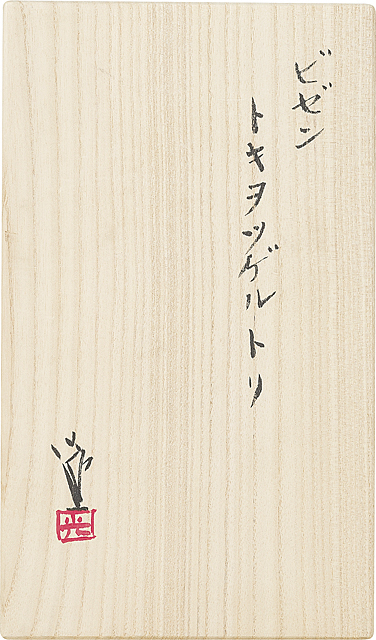 ビゼン
トキヲツゲルトリ